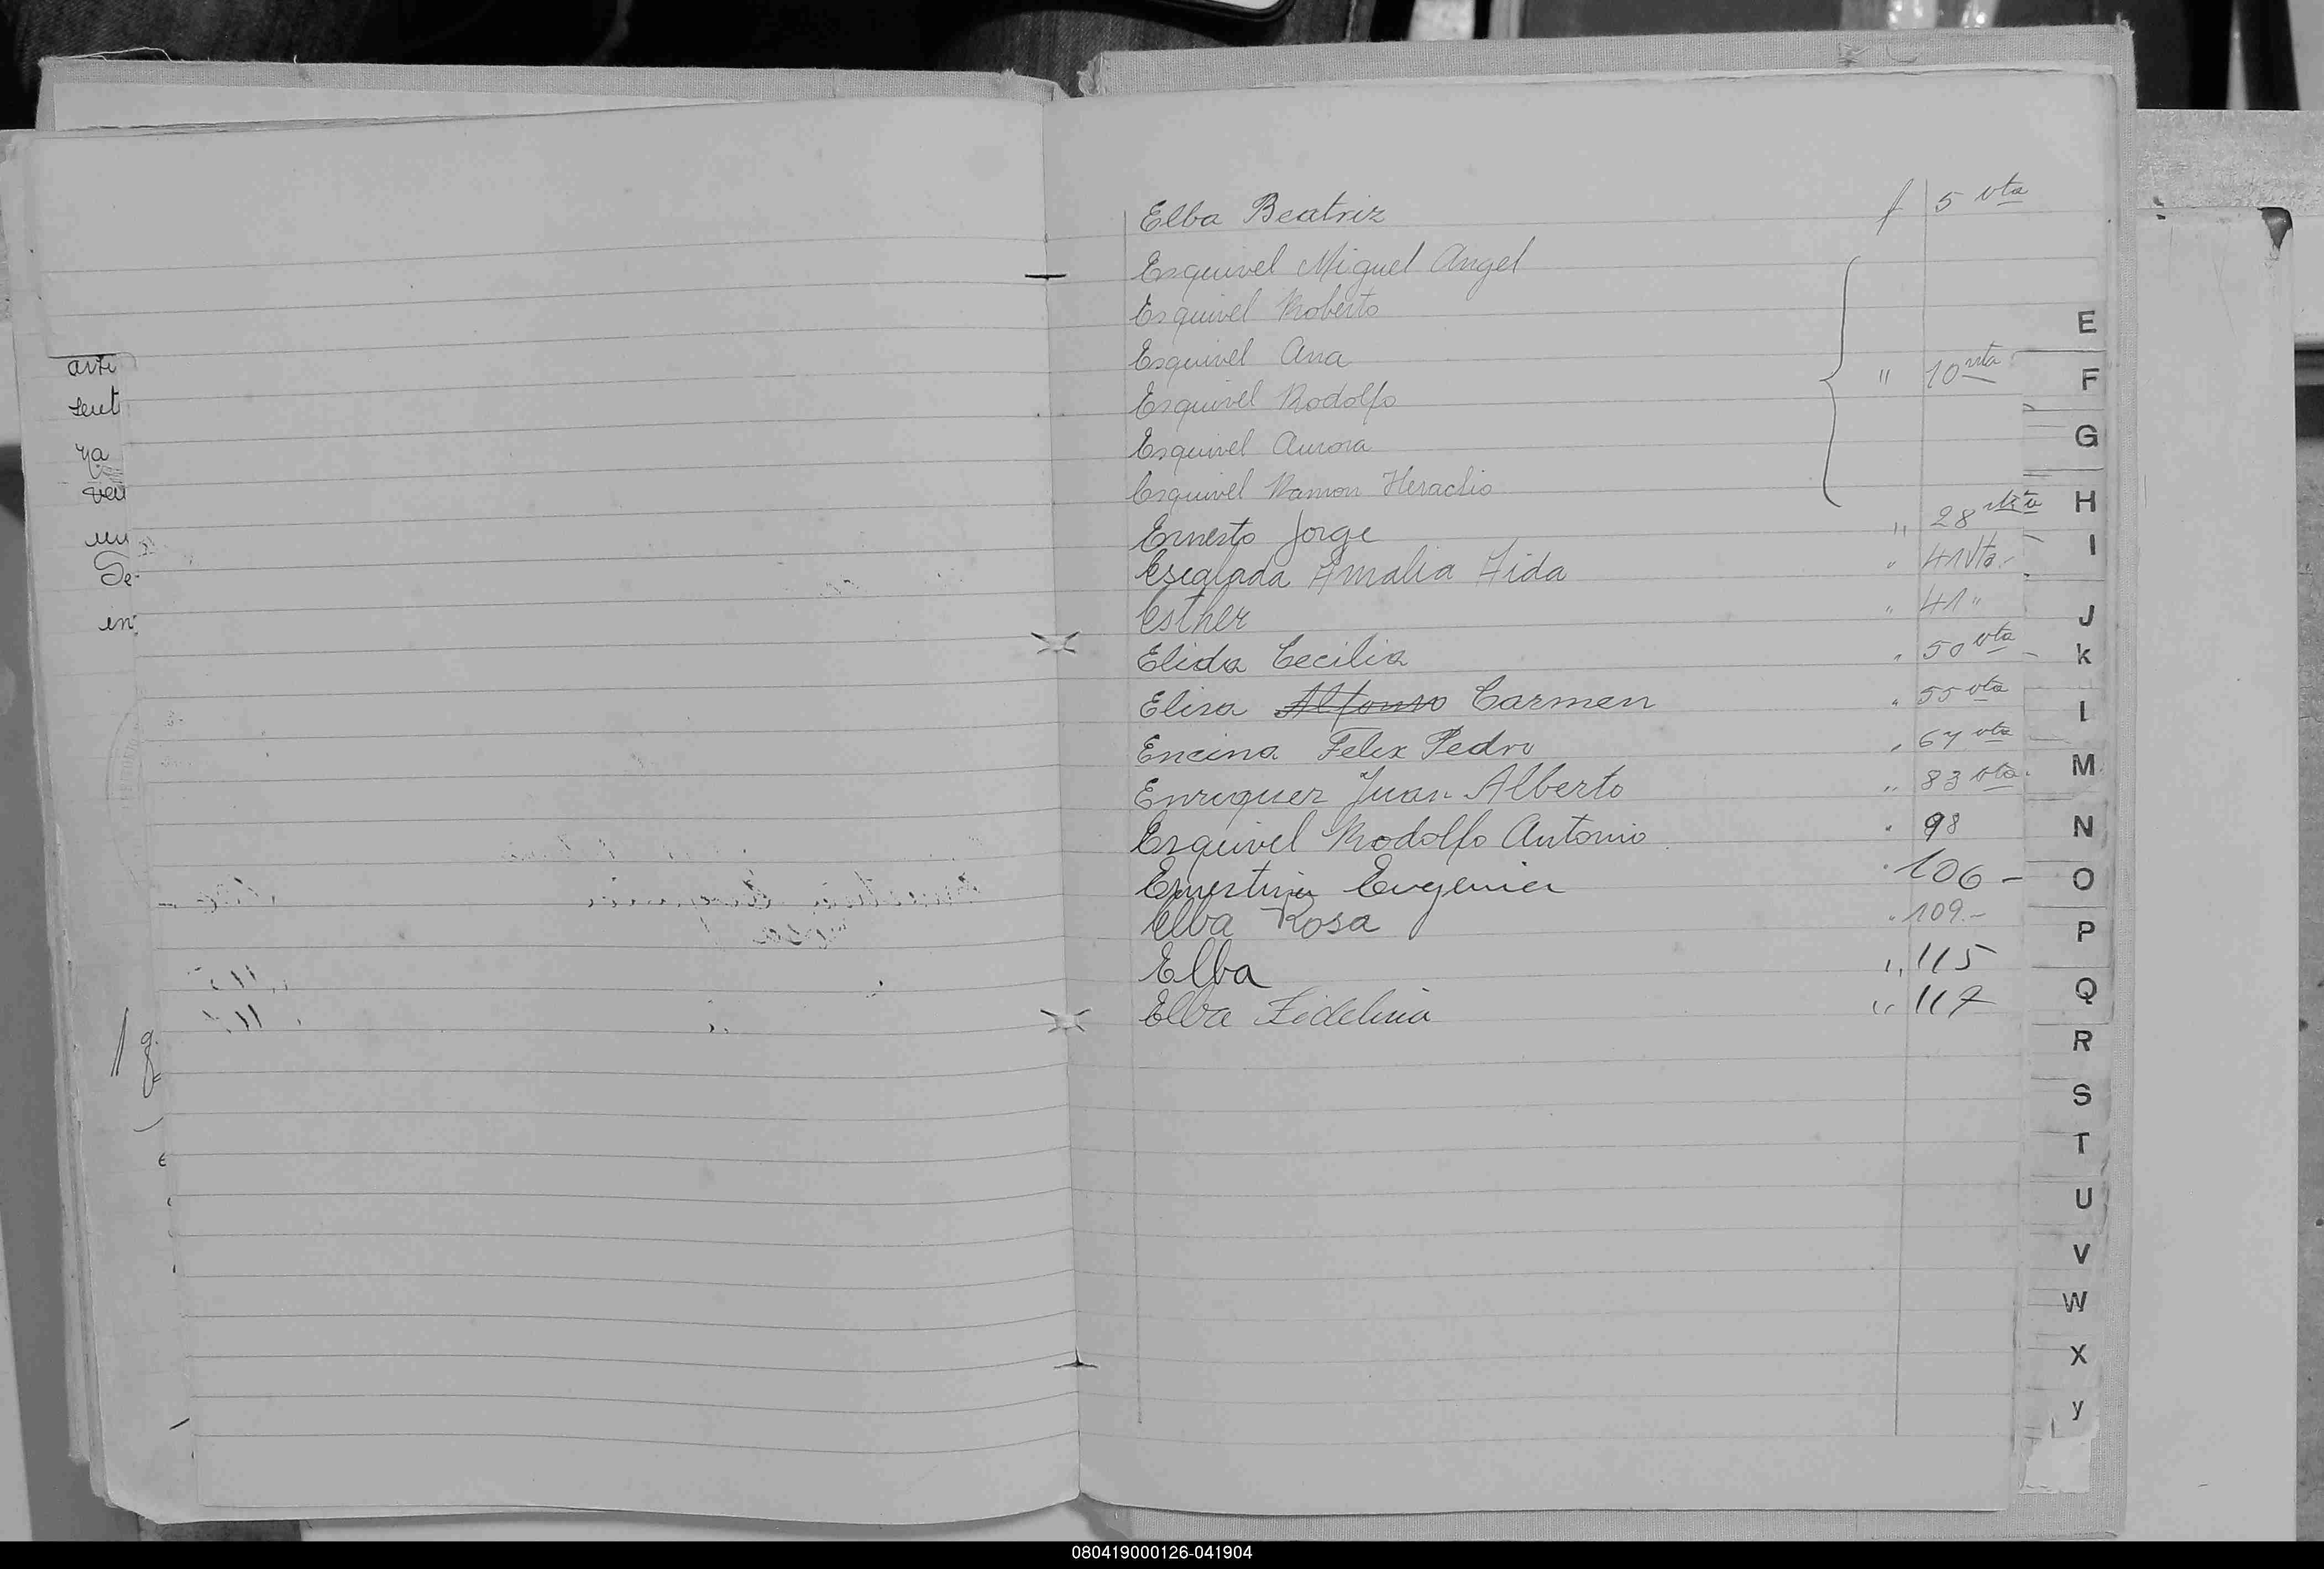 arti
sent
ya
ven
un
Se
en
Elba Beatriz f 5 vta
Esquivel Miguel Angel
Esquivel Roberto
Esquivel Ana
" 10 vta
Esquivel Rodolfo
Esquivel Aurora
Esquivel Ramon Heraclio
Ernesto Jorge " 28 vta
Escalada Amalia Aida " 41 Vta.
Esther " 41 "
Elida Cecilia " 50 vta
Elisa Alfonso Carmen " 55 vta
Encina Felix Pedro " 67 vta
Enriquez Juan Alberto " 83 vta.
Esquivel Rodolfo Antonio " 98
Ernestina Eugenia " 106 -
Elba Rosa " 109.-
Elba " 115
Elba Fidelina " 117
E
F
G
H
I
J
k
l
M
N
O
P
Q
R
S
T
U
V
W
X
y
080419000126-041904